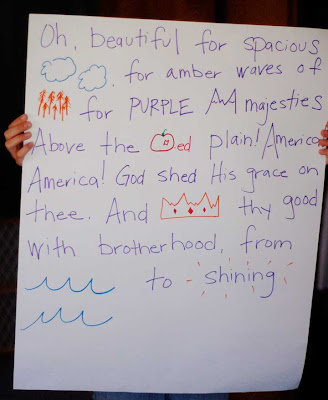 Oh, beautiful for spacious
, for amber waves of
for PURPLE majesties
Above the ed plain! America
America! God shed His grace on
thee. And thy good
with brotherhood, from
to shining